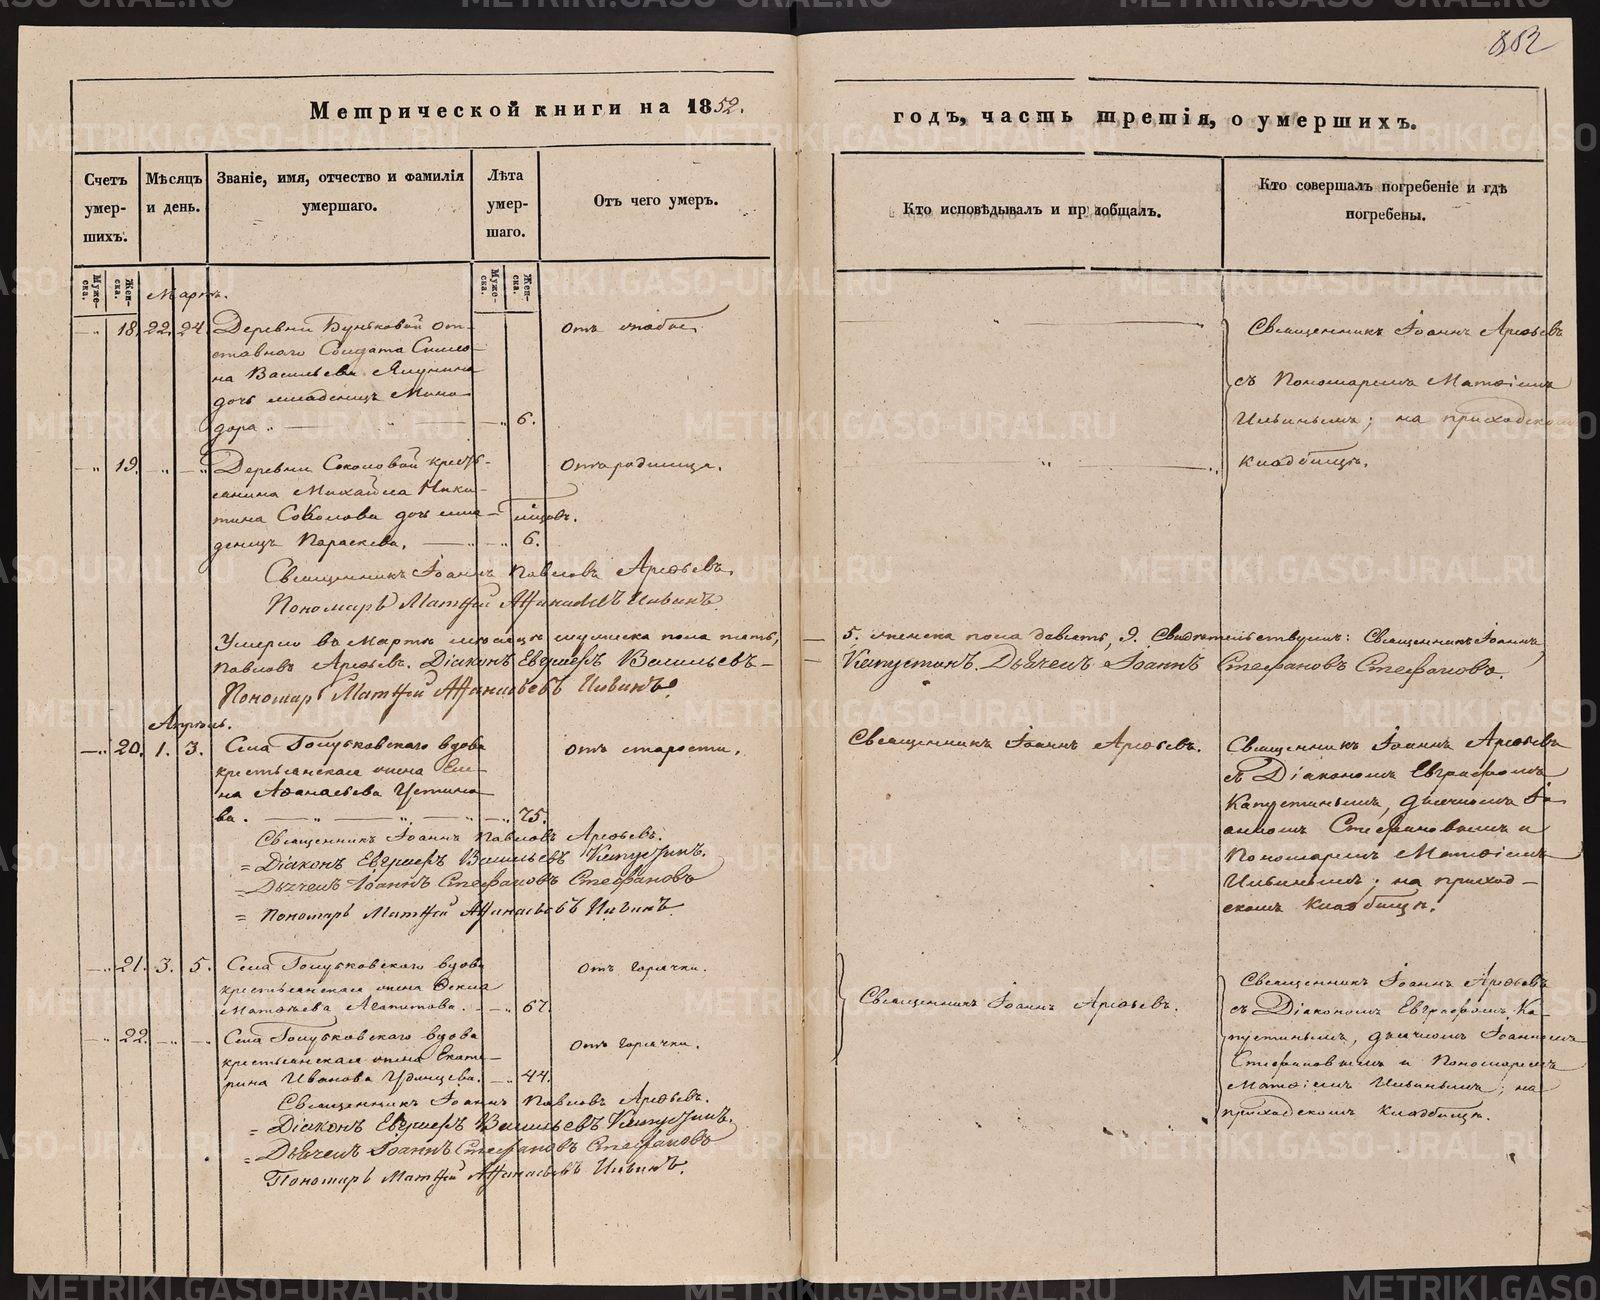 852
Метрической книги на 1852.
годъ, часть третія, о умершихъ.
Счетъ умер-шихъ.
Мѣсяцъ и день.
Званіе, имя, отчество и фамилія умершаго.
Лѣта умер-шаго.
Отъ чего умеръ.
Кто исповѣдывалъ и пріобщалъ.
Кто совершалъ погребеніе и гдѣ погребены.
Муже-ска.
Жен-ска.
Муже-ска.
Жен-ска.
Мартъ.
18. 22. 24. Деревни Буньковой от-
ставнаго Солдата Симео-
на Васильева Ялунина
дочь младенецъ Мино-
дора 6.
Священникъ Іоаннъ Арефьевъ
съ Пономаремъ Матѳіемъ
Ильинымъ; на приходскомъ
кладбищѣ.
19. Деревни Соколовой кресть-
янина Михайла Ники-
тина Соколова дочь мла-
денецъ Параскева. 6.
Отъ родимца.
Священникъ Іоаннъ Павловъ Арефьевъ.
Пономарь Матѳей Аѳанасьевъ Ильинъ.
Умерло въ Мартѣ мѣсяцѣ мужеска пола пять, 5. женска пола девять, 9. Свидѣтельствуемъ: Священникъ Іоаннъ
Павловъ Арефьевъ. Діаконъ Евграфъ Васильевъ Капустинъ. Дьячекъ Іоаннъ Стефановъ Стефановъ.
Пономарь Матѳей Аѳанасьевъ Ильинъ.
Апрѣль.
20. 1. 3. Села Голубковскаго вдова
крестьянская жена Еле-
на Аѳанасьева Устино-
ва. 75.
Отъ старости.
Священникъ Іоаннъ Арефьевъ.
Священникъ Іоаннъ Арефьевъ
съ Діакономъ Евграфомъ
Капустинымъ, дьячкомъ Іо-
анномъ Стефановымъ и
Пономаремъ Матѳіемъ
Ильинымъ; на приход-
скомъ кладбищѣ.
Священникъ Іоаннъ Павловъ Арефьевъ.
Діаконъ Евграфъ Васильевъ Капустинъ.
Дьячекъ Іоаннъ Стефановъ Стефановъ
Пономарь Матѳей Аѳанасьевъ Ильинъ.
21. 3. 5. Села Голубковскаго вдова
крестьянская жена Ѳекла
Матвѣева Агапитова. 67.
Отъ горячки.
Священникъ Іоаннъ Арефьевъ.
Священникъ Іоаннъ Арефьевъ
съ Діакономъ Евграфомъ Ка-
пустинымъ, дьячкомъ Іоанномъ
Стефановымъ и Пономаремъ
Матѳіемъ Ильинымъ; на
приходскомъ кладбищѣ.
22. Села Голубковскаго вдова
крестьянская жена Екате-
рина Иванова Удинцева. 44.
Отъ горячки.
Священникъ Іоаннъ Павловъ Арефьевъ.
Діаконъ Евграфъ Васильевъ Капустинъ.
Дьячекъ Іоаннъ Стефановъ Стефановъ
Пономарь Матѳей Аѳанасьевъ Ильинъ.
METRIKI.GASO-URAL.RU